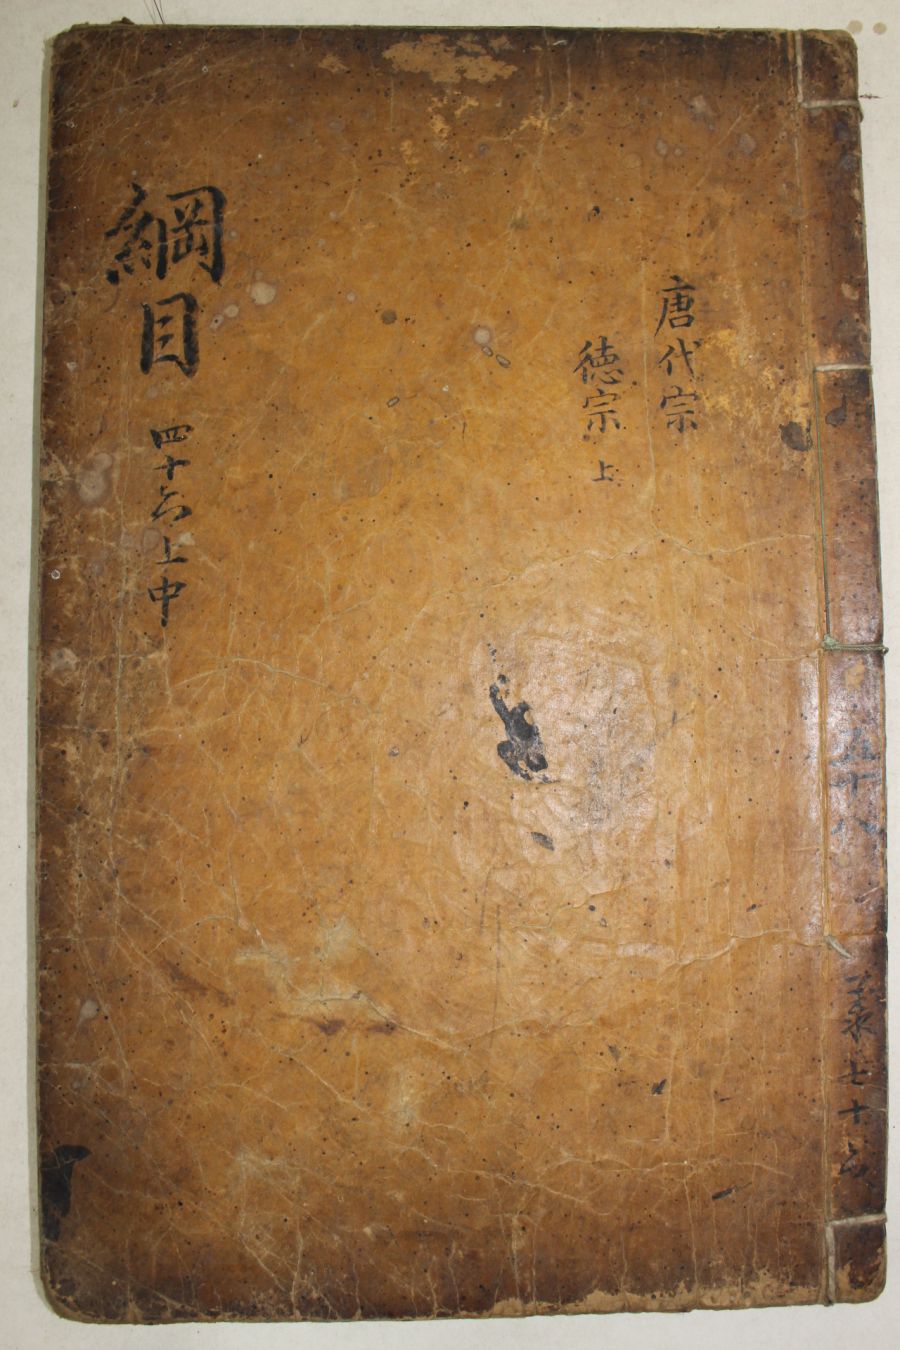 唐代宗
德宗 上
綱目 四十六上中
五十八
共七十六